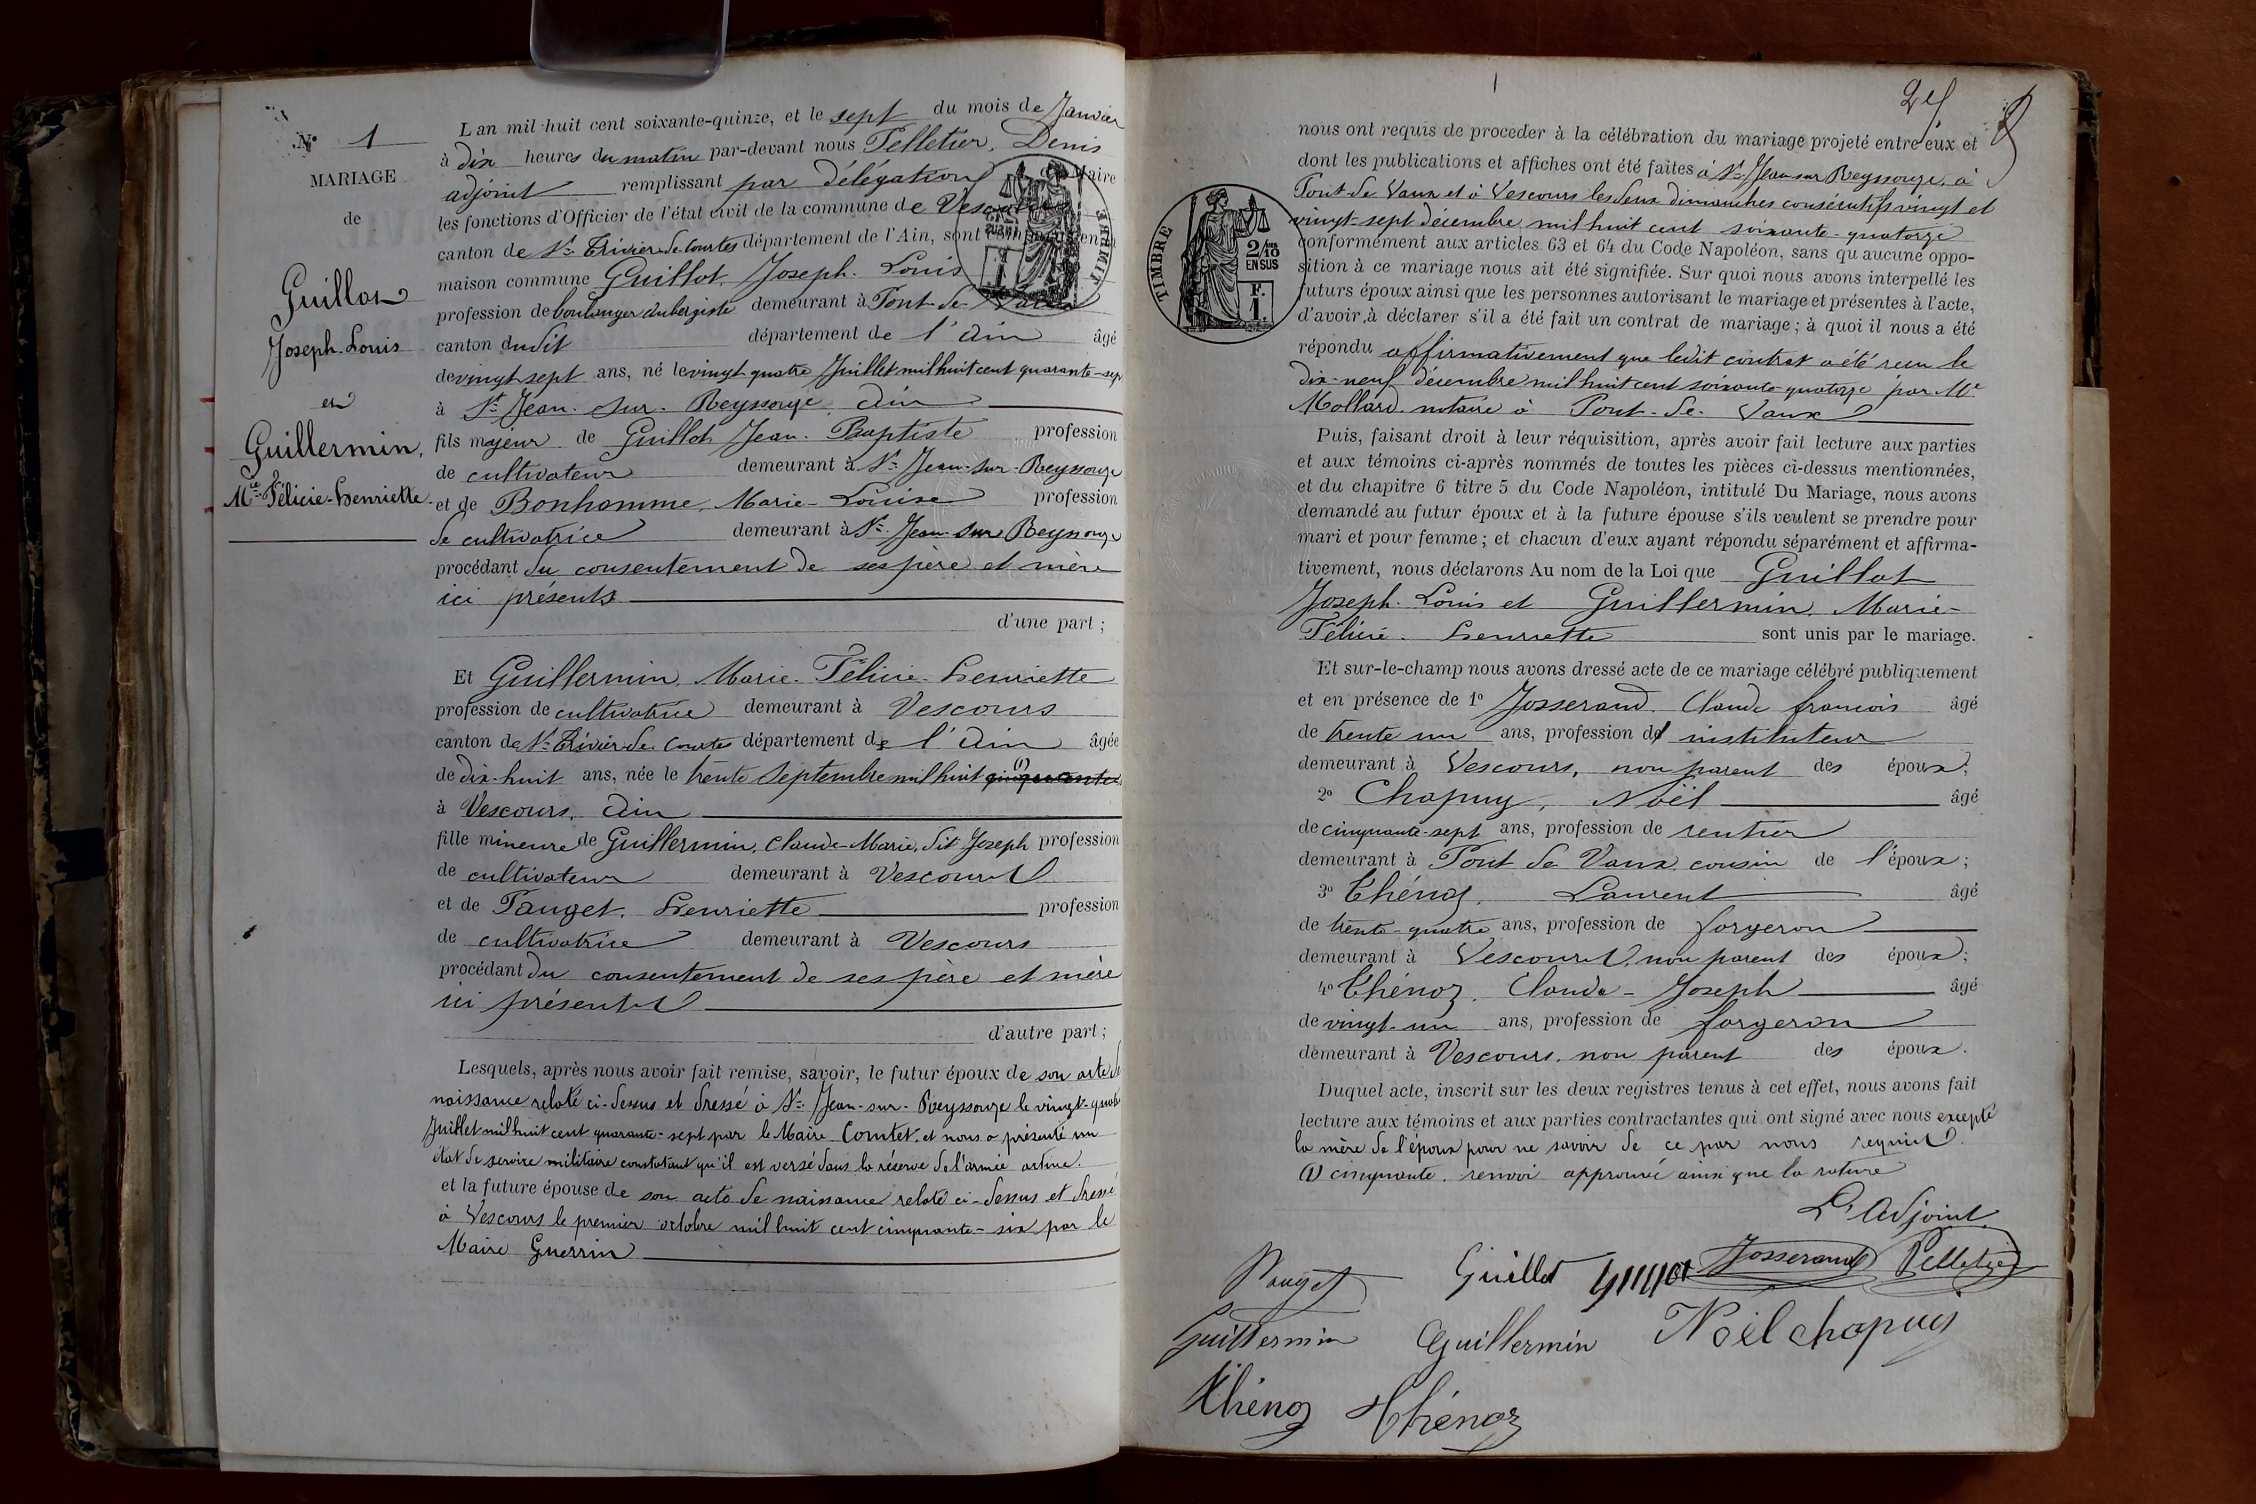 N° 1
MARIAGE
de
Guillot
Joseph-Louis
et
Guillermin,
Mie Félicie-Henriette
L'an mil huit cent soixante-quinze, et le sept du mois de Janvier
à dix heures du matin par-devant nous Pelletier, Denis
adjoint remplissant par délégation Maire
les fonctions d'Officier de l'état civil de la commune de Vescours
canton de St Trivier de Courtes département de l'Ain, sont comparus en la
maison commune Guillot, Joseph-Louis
profession de boulanger aubergiste demeurant à Pont-de-Vaux
canton dudit département de l'Ain âgé
de vingt sept ans, né le vingt quatre Juillet mil huit cent quarante-sept
à St Jean-sur-Reyssouze, Ain
fils majeur de Guillot Jean-Baptiste profession
de cultivateur demeurant à St Jean-sur-Reyssouze
et de Bonhomme, Marie-Louise profession
de cultivatrice demeurant à St Jean-sur Reyssouze
procédant du consentement de ses père et mère
ici présents
d'une part ;
Et Guillermin, Marie-Félicie-Henriette
profession de cultivatrice demeurant à Vescours
canton de St Trivier de Courtes département de l'Ain âgée
de dix-huit ans, née le trente Septembre mil huit (1) cinquante
à Vescours, Ain
fille mineure de Guillermin, Claude-Marie, dit Joseph profession
de cultivateur demeurant à Vescours
et de Pauget, Henriette profession
de cultivatrice demeurant à Vescours
procédant du consentement de ses père et mère
ici présents
d'autre part ;
Lesquels, après nous avoir fait remise, savoir, le futur époux de son acte de
naissance relaté ci-dessus et dressé à St Jean-sur-Reyssouze le vingt-quatre
Juillet mil huit cent quarante-sept par le Maire Comtet, et nous a présenté un
état de service militaire constatant qu'il est versé dans la réserve de l'armée active.
et la future épouse de son acte de naissance relaté ci-dessus et dressé
à Vescours le premier octobre mil huit cent cinquante-six par le
Maire Guerrin
TIMBRE
2/10 EN SUS
F. 1.
nous ont requis de proceder à la célébration du mariage projeté entre eux et
dont les publications et affiches ont été faites à St Jean sur Reyssouze, à
Pont-de Vaux et à Vescours les deux dimanches consécutifs vingt et
vingt-sept décembre mil huit cent soixante-quatorze
conformément aux articles 63 et 64 du Code Napoléon, sans qu'aucune oppo-
sition à ce mariage nous ait été signifiée. Sur quoi nous avons interpellé les
futurs époux ainsi que les personnes autorisant le mariage et présentes à l'acte,
d'avoir à déclarer s'il a été fait un contrat de mariage ; à quoi il nous a été
répondu affirmativement que ledit contrat a été reçu le
dix-neuf décembre mil huit cent soixante quatorze par Me
Mollard notaire à Pont-de-Vaux
Puis, faisant droit à leur réquisition, après avoir fait lecture aux parties
et aux témoins ci-après nommés de toutes les pièces ci-dessus mentionnées,
et du chapitre 6 titre 5 du Code Napoléon, intitulé Du Mariage, nous avons
demandé au futur époux et à la future épouse s'ils veulent se prendre pour
mari et pour femme ; et chacun d'eux ayant répondu séparément et affirma-
tivement, nous déclarons Au nom de la Loi que Guillot
Joseph-Louis et Guillermin, Marie-
Félicie-Henriette sont unis par le mariage.
Et sur-le-champ nous avons dressé acte de ce mariage célébré publiquement
et en présence de 1° Josserand, Claude françois âgé
de trente un ans, profession d' instituteur
demeurant à Vescours, non parent des époux;
2° Chapuy, Noël âgé
de cinquante-sept ans, profession de rentier
demeurant à Pont de Vaux cousin de l'époux ;
3° Thénoz, Laurent âgé
de trente-quatre ans, profession de forgeron
demeurant à Vescours, non parent des époux;
4° Thénoz, Claude-Joseph âgé
de vingt-un ans, profession de forgeron
demeurant à Vescours, non parent des époux.
Duquel acte, inscrit sur les deux registres tenus à cet effet, nous avons fait
lecture aux témoins et aux parties contractantes qui ont signé avec nous excepté
la mère de l'époux pour ne savoir de ce par nous requis.
(1) cinquante. renvoi approuvé ainsi que la rature
L'Adjoint
Pauget Guillot Josserand Pelletier
Guillermin Guillermin Noël chapuy
Thénoz Thénoz